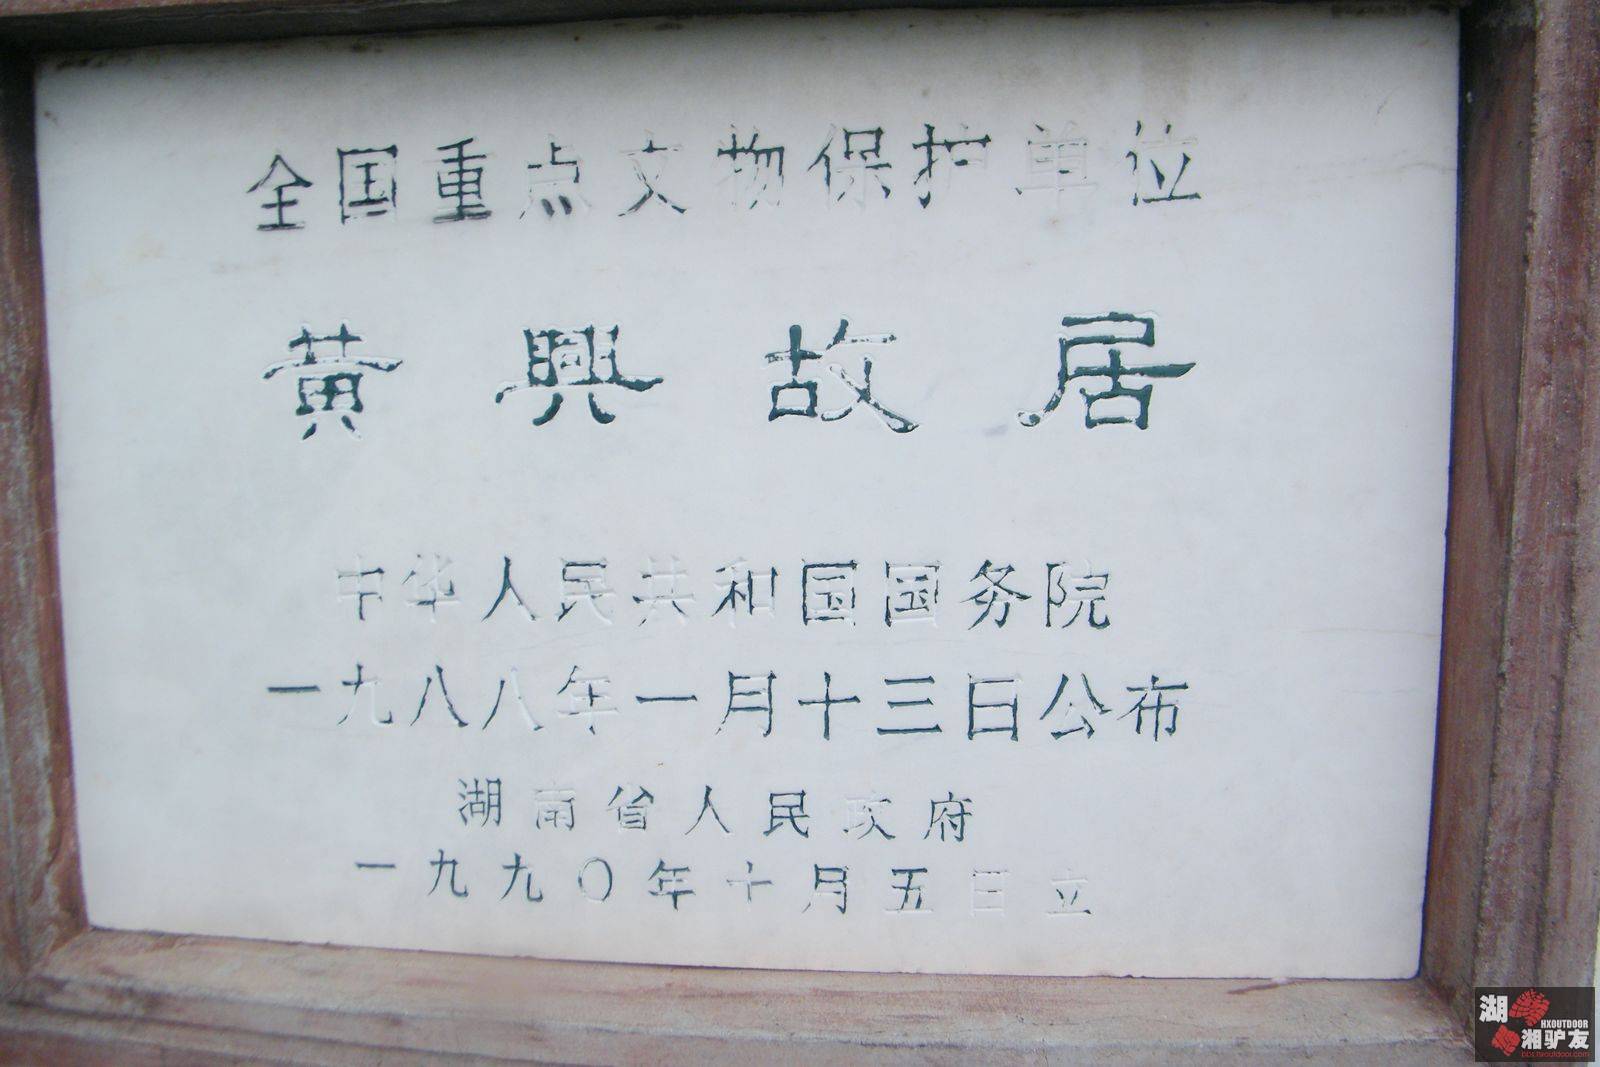 全国重点文物保护单位
黄興故居
中华人民共和国国务院
一九八八年一月十三日公布
湖南省人民政府
一九九〇年十月五日立
湖
HXOUTDOOR
湘驴友
bbs.hxoutdoor.com